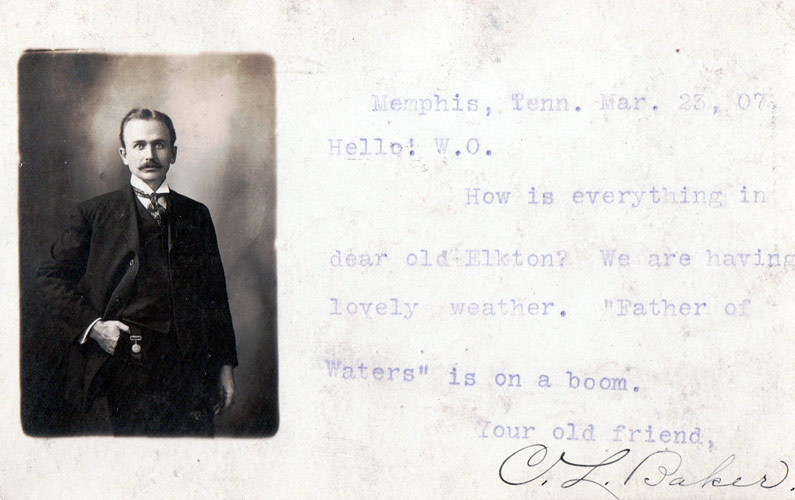 Memphis, Tenn. Mar. 23, 07.
Hello! W.O.
How is everything in
dear old Elkton? We are having
lovely weather. "Father of
Waters" is on a boom.
Your old friend,
C. L. Baker.